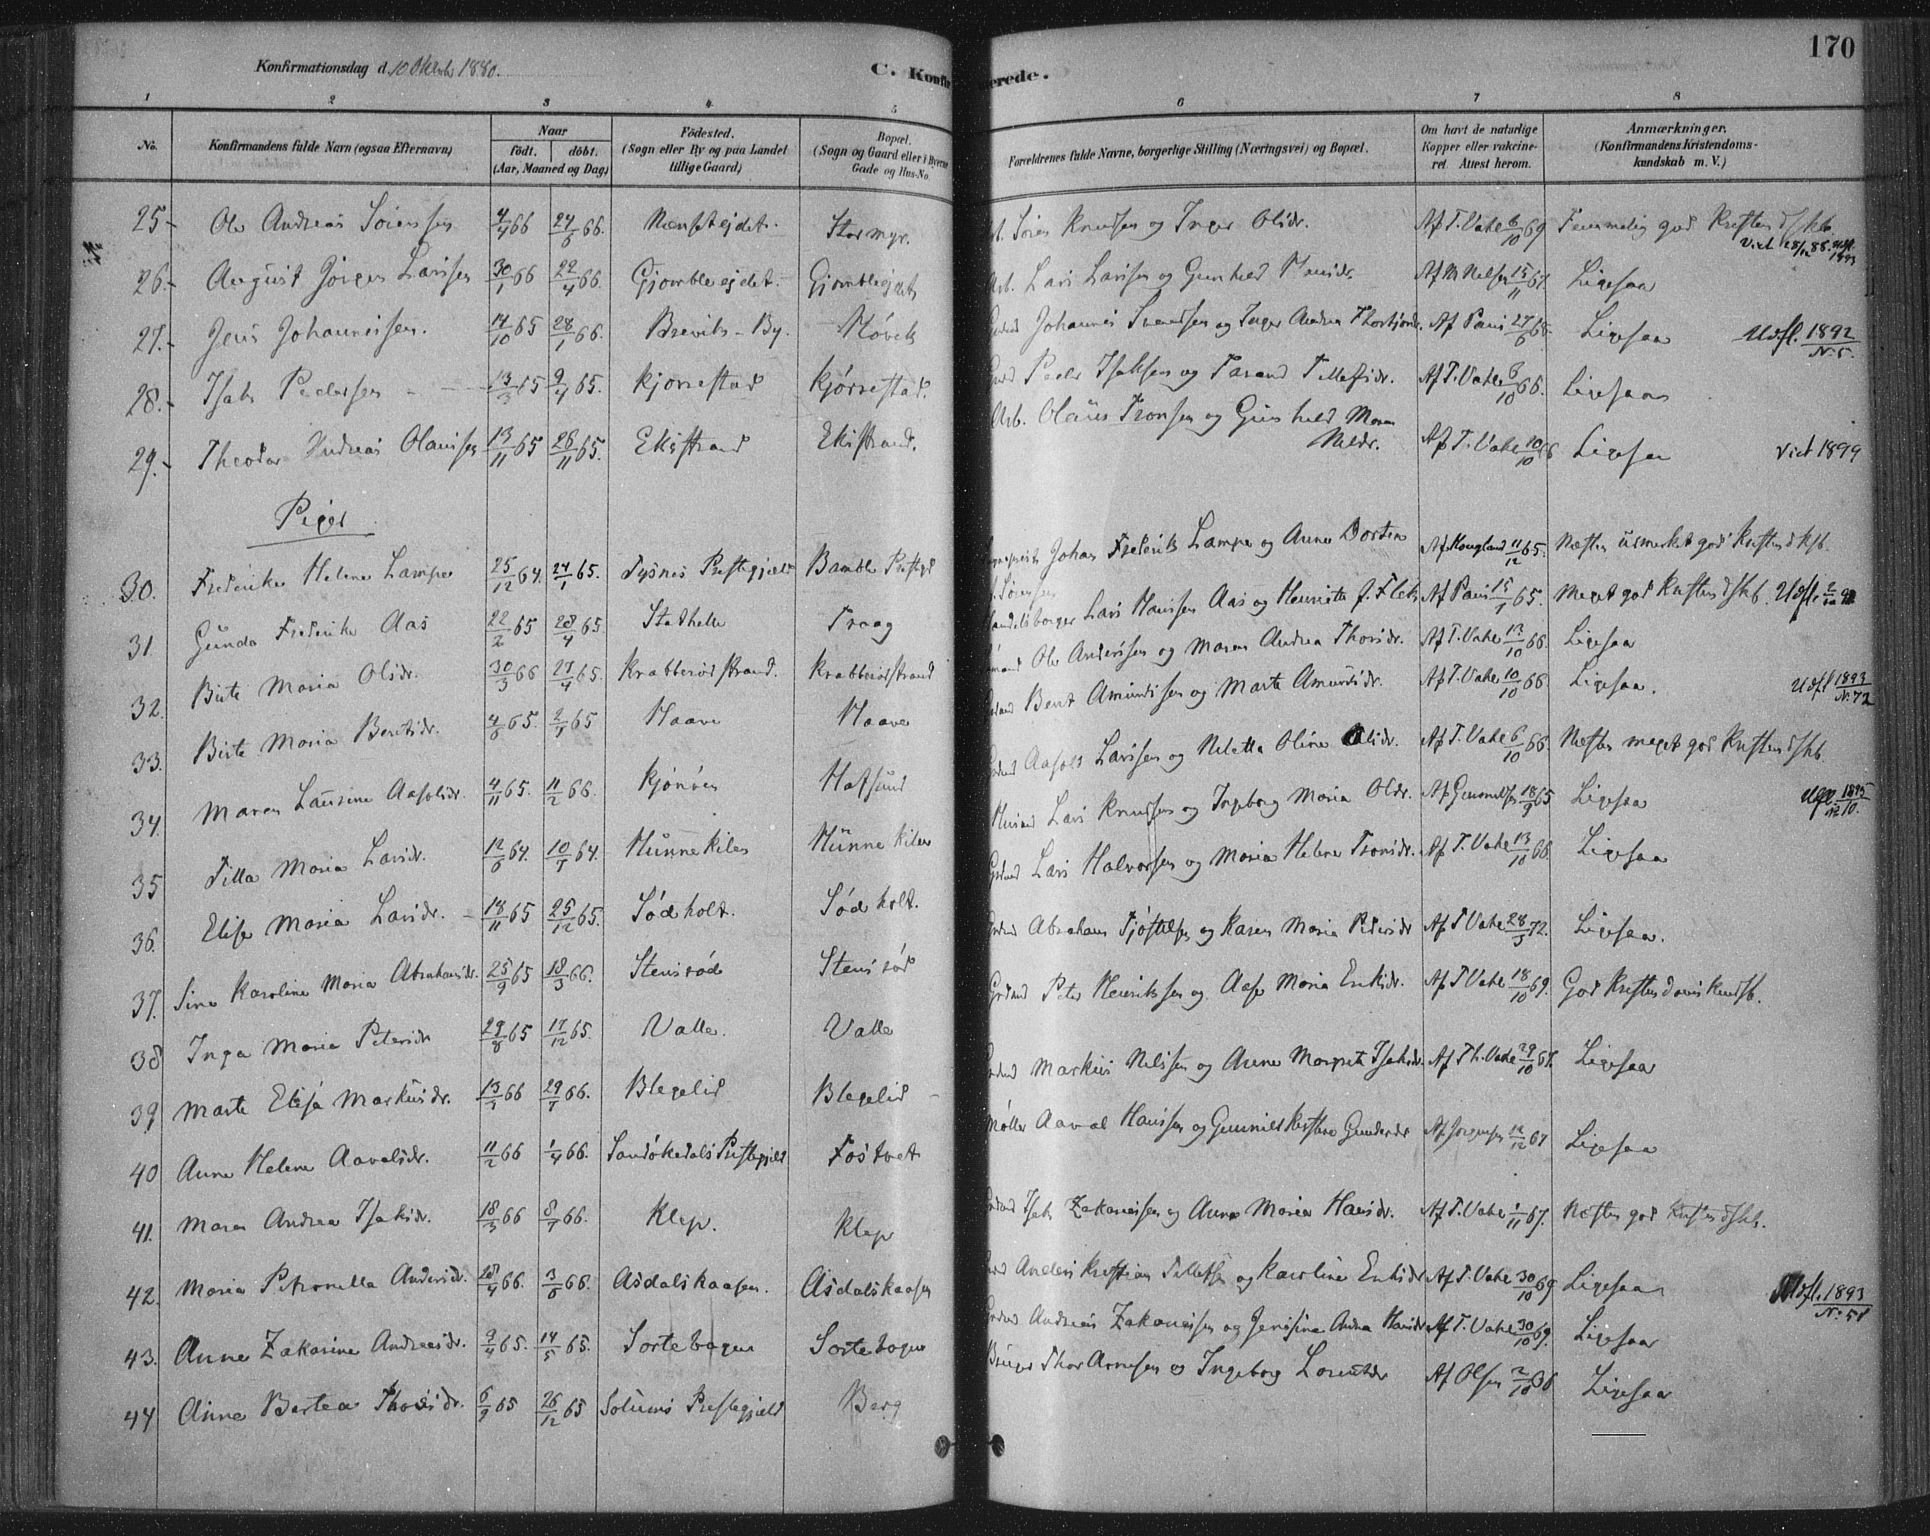 170
Konfirmationsdag d. 10 Oktober 1880.
C. Konfirmerede.
1 2 3 4 5 6 7 8
No. Konfirmandens fulde Navn (ogsaa Efternavn) Naar födt. döbt. (Aar, Maaned og Dag) Födested. (Sogn eller By og paa Landet tillige Gaard) Bopæl. (Sogn og Gaard eller i Byerne Gade og Hus-No. Forældrenes fulde Navne, borgerlige Stilling (Næringsvei) og Bopæl. Om havt de naturlige Kopper eller vakcineret Attest herom. Anmærkninger. (Konfirmandens Kristendomskundskab m. V.)
25. Ole Andreas Sörensen 4/4 66 24/6 66. Stormyr. Arb. Sören Knudsen og Inger Olsdr. Af T. Vahe 6/10 69 Temmelig god Kristendskb.
26. August Jörgen Larssen 30/1 66 22/4 66. Gjømleejdet Gjømleejdet Arb. Lars Larssen og Gunhild Hansdr. Af M Nilsen 15/11 67. Ligesaa
27. Jens Johannessen. 14/10 65 28/1 66. Breviks-By. Af Paus 27/6 Ligesaa Udfl. 1892 No 5.
28. Isak Pedersen 13/3 65 9/4 65. Kjørrestad Kjørrestad. Peder Isaksen og Taran Tellefsdr. Af T. Vahe 6/10 66. Ligesaa
29. Theodor Andreas Olaussen 13/11 65 26/11 65. Ekstrand Ekstrand. Arb. Olaus Tronsen og Gunhild Maren Nilsdr. Af T. Vahe 10/10 66 Ligesaa Vict 1899
Piger
30. Frederikke Helene Lampe 25/12 64. 24/1 65. Tysnes Prestegjeld Bamble Prestegd Johan Frederik Lampe og Anne Dortea Sörensen Af Hougland 11/12 65. Næsten udmerket god Kristendskb.
31 Gunda Frederikke Aas 22/2 65 23/4 65. Stathelle Traag Handelsborger Lars Hanssen Aas og Henriette f. Flek Af Paus 15/1 65. Meget god Kristendskb.
32. Birte Maria Olsdr. 30/3 66 27/4 65. Krabberødstrand. Krabberødstrand Ole Andersen og Maren Andrea Thorsdr. Af T. Vahe 13/10 66. Ligesaa
33. Birte Maria Bentsdr. 4/6 65. 2/7 65 Haave Haave Bent Amundssen og Marte Amundsdr. Af T. Vahe 10/10 66. Ligesaa. Udfl 1893 No. 72
34. Maren Laurine Aasoldsdr. 4/11 65. 11/2 66. Kjønøen Hafsund Aasold Larssen og Neletta Oline Olsdr. Af T. Vahe 6/10 66. Næsten meget god Kristendskb.
35 Tilla Maria Larsdr. 12/6 64. 10/7 64. Hunnekilen Hunnekilen Husmd Lars Knudsen og Ingeborg Maria Olsdr. 18/9 65 Ligesaa Udfl. 1895 No 10.
36. Elise Maria Larsdr. 18/11 65 25/12 65. Sødholt. Sødholt. Grdmd Lars Halvorsen og Maria Helene Tronsdr. Af T. Vahe 13/10 66. Ligesaa
37. Sine Karoline Maria Abrahamsdr. 25/9 65 18/3 66. Stensrød Stensrød Grdmd Abraham Tjøstelsen og Karen Maria Pedersdr Af T Vahe 28/3 72. Ligesaa.
38 Inga Maria Petersdr 29/8 65 17/12 65. Valle. Valle Grdmd Peter Henriksen og Aase Maria Eriksdr. Af T Vahe 18/10 69. God Kristendomskundsk.
39 Marte Elise Markusdr. 13/3 66 29/7 66. Blegelid Blegelid Grdmd Markus Nilssen og Anne Margrete Isaksdr. Af Th. Vahe 29/10 67. Ligesaa
40 Anne Helene Aavalsdr. 11/2 66 1/4 66. Sandøkedals Prestegjeld Fostvet Møller Aaval Hanssen og Gunnild Kirstine Gundersdr Af Jorgensen 12/12 67 Ligesaa
41. Maren Andrea Isaksdr. 18/3 66 8/7 66. Klep. Klep Grdmd Isak Zakariassen og Anne Maria Hansdr. Af T. Vahe 1/11 67. Næsten god Kristendskb.
42. Maria Petronella Andersdr. 28/4 66. 3/6 66. Asdalskaasen. Asdalskaasen Anders Kristian Tellefsen og Karoline Eriksdr Af T. Vahe 30/10 69 Ligesaa Udfl. 1893 No. 51
43. Anne Zakarine Andreasdr. 9/4 65. 14/5 65. Sortebogen Sortebogen Grdmd Andreas Zakariassen og Jensine Andrea Hansdr Af T. Vahe 30/10 69. Ligesaa
44 Anne Bertea Thorsdr. 6/9 65 26/12 65 Solums Prestegjeld Berg Bruger Thor Arnesen og Ingeborg Lorentsdr Af Olsen 2/10 Ligesaa